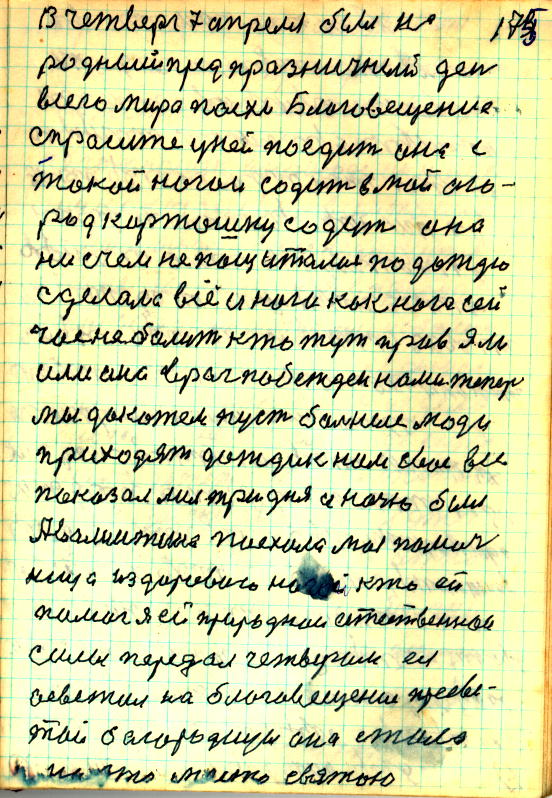 В четверг 7 апреля был на 175
родный предпразничный ден
всего мира поехо Благовещение
спрасите у ней поедит она с
такой ногои содит в мой ого-
род картошку содит она
ни с чем не пощиталас по дождю
сделала всё и нога как нога сей
час не болит кто тут прав я ли
или она враг побежден нами тепер
мы докажем пуст болные люди
приходят дождик нам свое все
показал лил три дня и ночь был
я Валинтина поехала моя помощ
ница издоровою ногой кто ей
помог я ей природнои естественнои
силы передал четвергом ея
осветил на благовещение пресве-
тои богородицы она стала